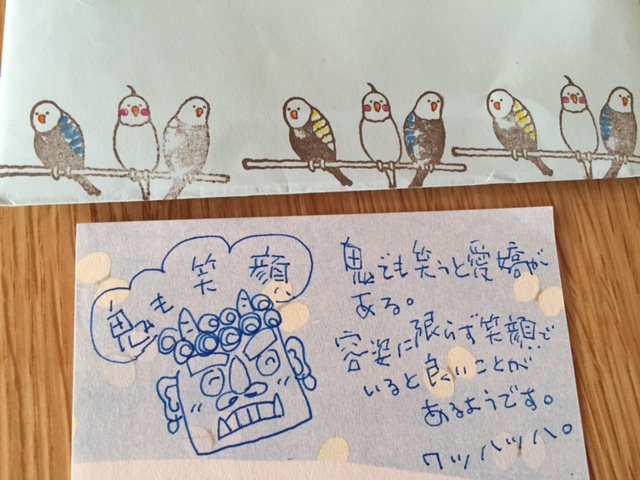 鬼も
笑顔
鬼でも笑うと愛嬌が
ある。
容姿に限らず笑顔で
いると良いことが
あるようです。
ワッハッハ。